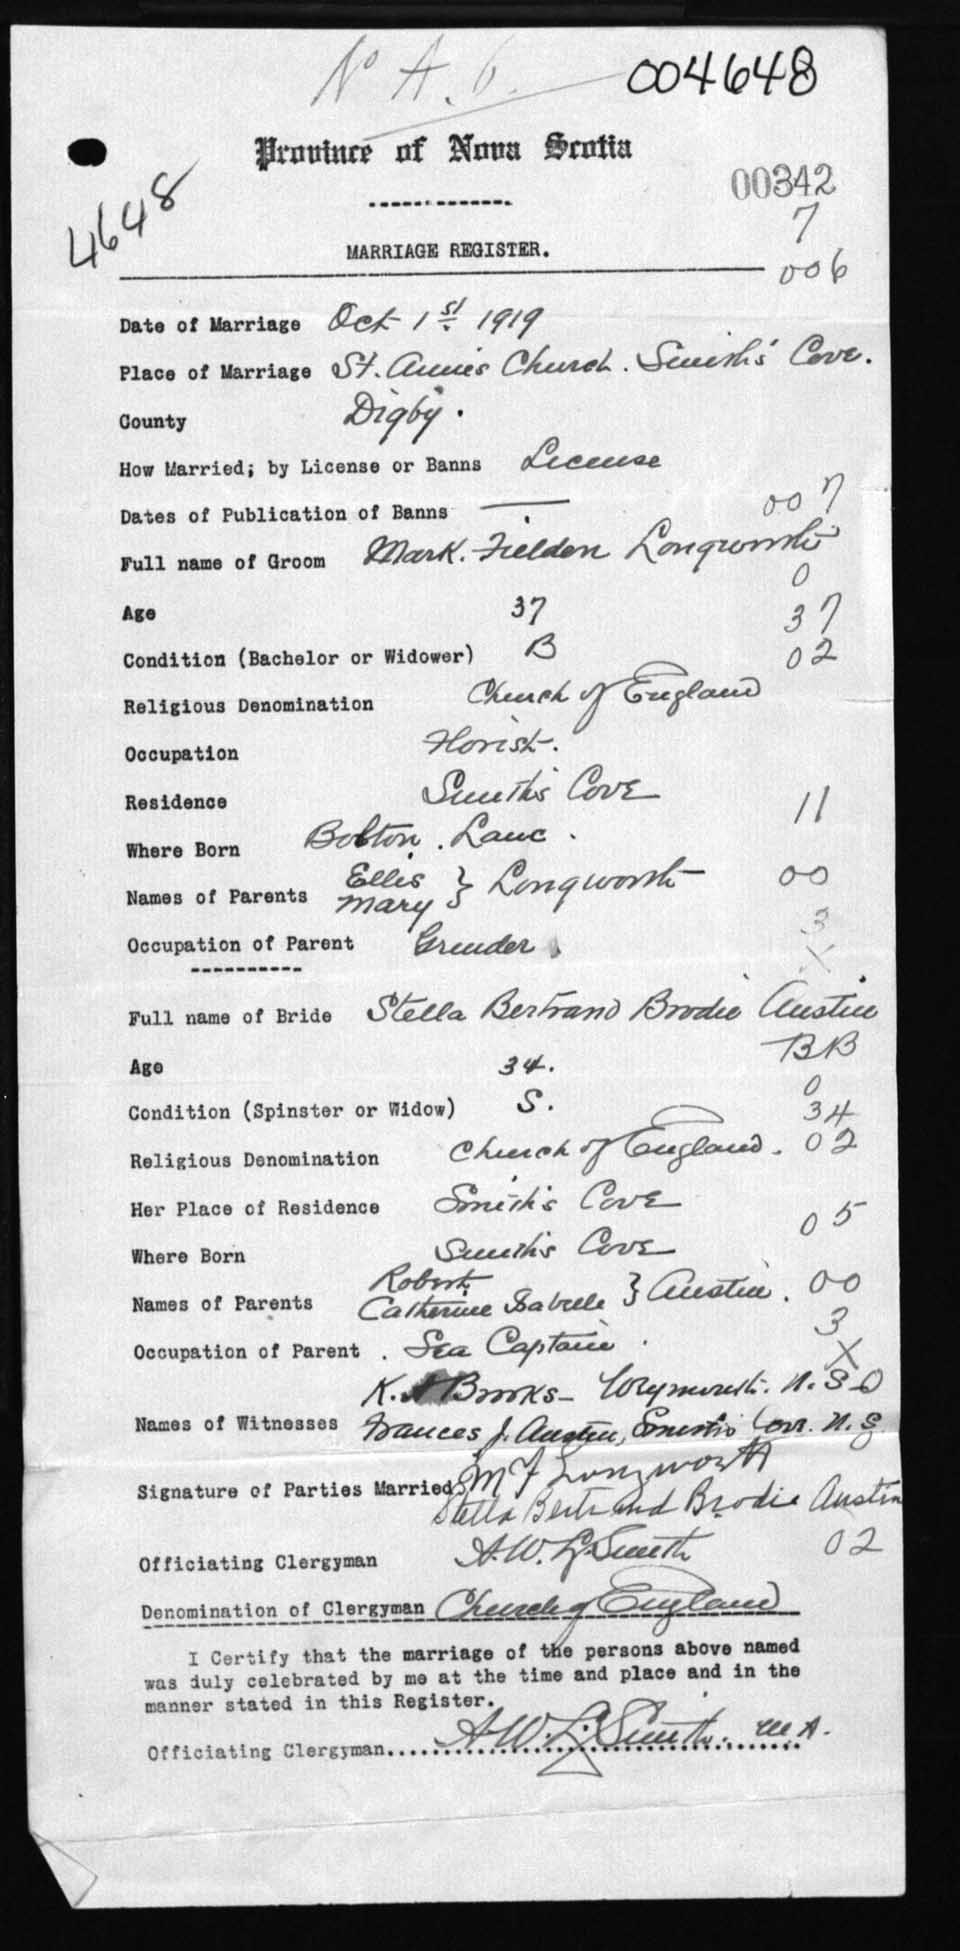 No A. 6.
004648
Province of Nova Scotia
00342
4648
7
MARRIAGE REGISTER.
006
Date of Marriage Oct 1st 1919
Place of Marriage St. Anne's Church. Smith's Cove.
County Digby.
How Married; by License or Banns License
Dates of Publication of Banns —
007
Full name of Groom Mark. Fielden Longworth
0
Age 37
37
Condition (Bachelor or Widower) B
02
Religious Denomination Church of England
Occupation Florist.
Residence Smith's Cove
11
Where Born Bolton. Lanc.
Names of Parents Ellis Mary } Longworth
00
3
Occupation of Parent Grinder.
X
Full name of Bride Stella Bertrand Brodie Austin
BB
Age 34.
0
Condition (Spinster or Widow) S.
34
Religious Denomination Church of England.
02
Her Place of Residence Smith's Cove
05
Where Born Smith's Cove
Names of Parents Robert Catherine Isabelle } Austin.
00
3
Occupation of Parent. Sea Captain.
X
K. Brooks - Weymouth. N.S.
Names of Witnesses Frances J. Austin, Smith's Cove. N.S.
Signature of Parties Married M F Longworth
Stella Bertrand Brodie Austin
Officiating Clergyman A.W. L. Smith
02
Denomination of Clergyman Church of England
I Certify that the marriage of the persons above named
was duly celebrated by me at the time and place and in the
manner stated in this Register.
Officiating Clergyman A W. L. Smith. M.A.